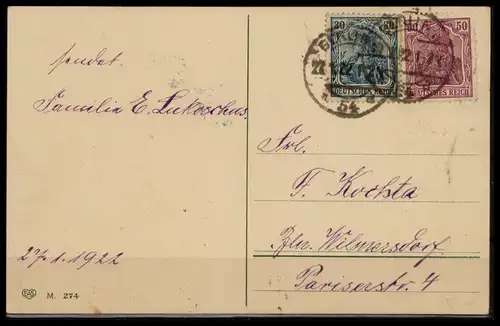 sendet.
Familie E. Lukoschus.
27.1.1922
EAS
M. 274
30 30
DEUTSCHES REICH
50
DEUTSCHES REICH
BERLIN
54
Frl.
F. Kochsta
Bln. Wilmersdorf
Pariserstr. 4